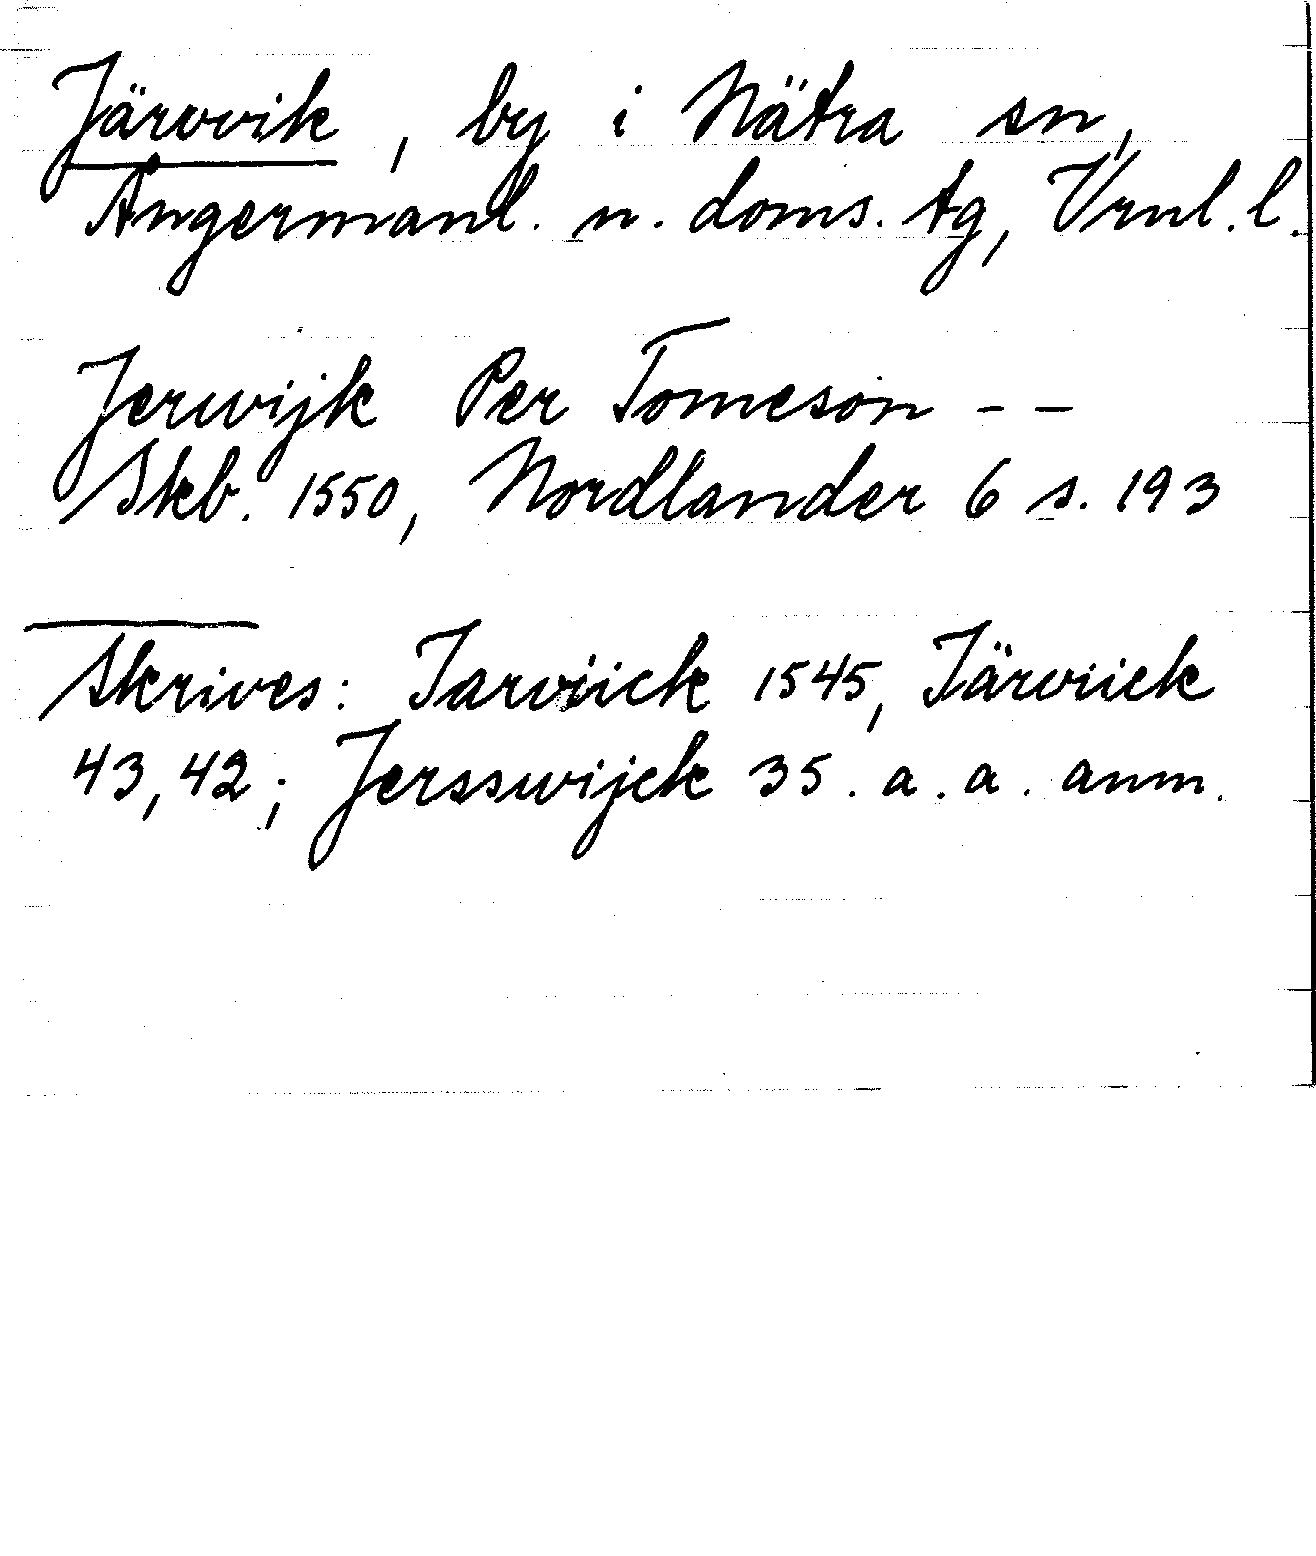 Järvvik, by i Nätra sn,
Ångermanl. n. doms. tg, Vrnl. l.
Jerwijk Per Tomeson - -
Skb. 1550, Nordlander 6 s. 193
Skrives: Iarviick 1545, Iärviick
43, 42; Jersswijck 35. a. a. anm.